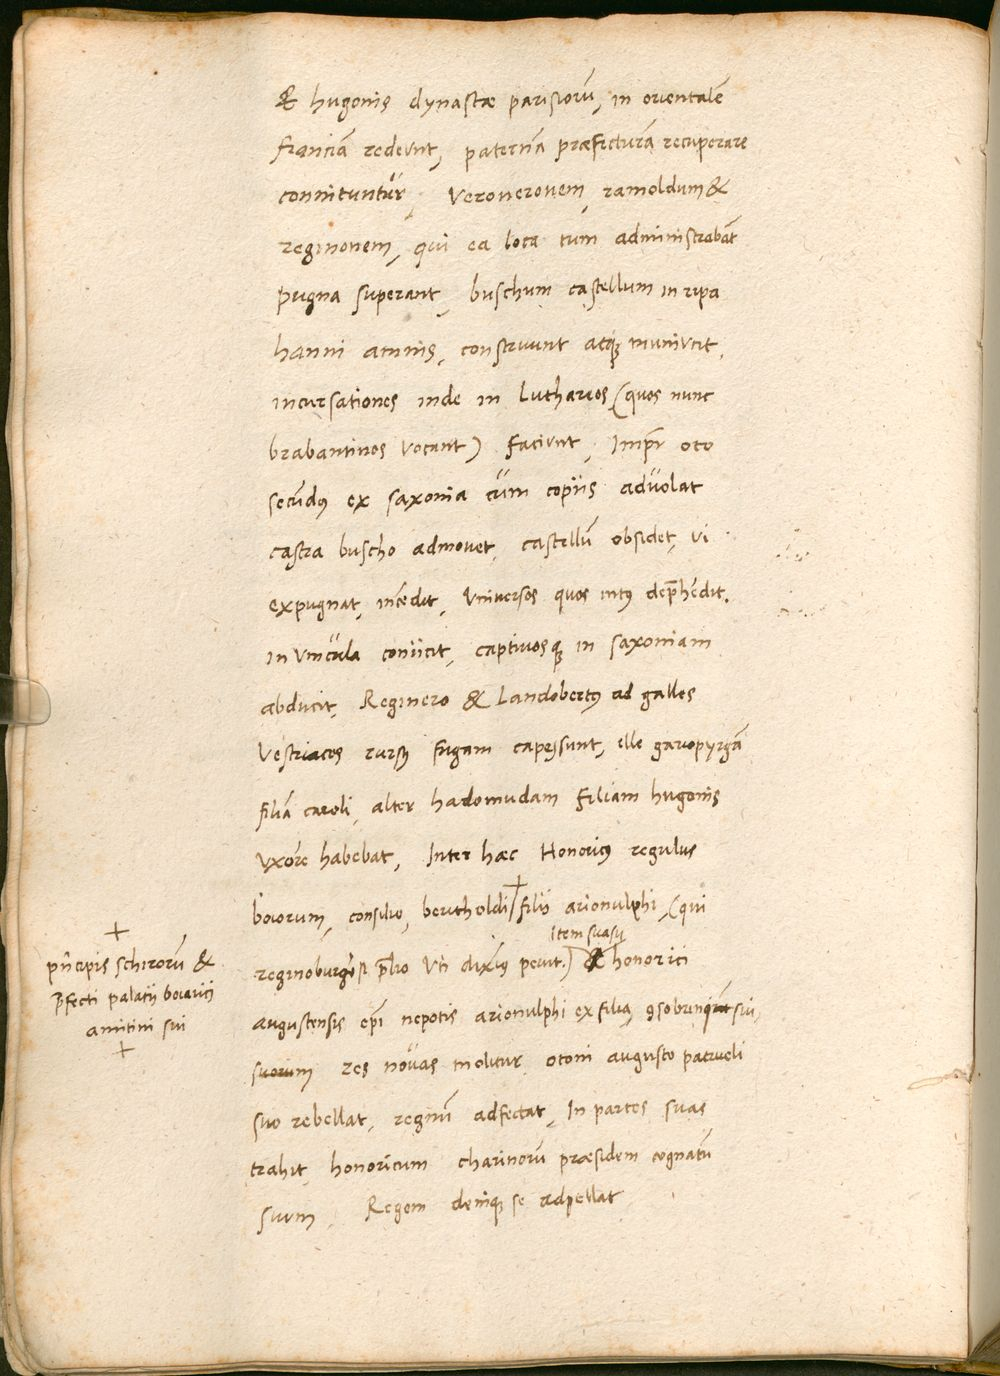 & hugonis dynastæ parisiorū, in orientalē
franciā redeunt, paternā præfecturā recuperare
connituntur, Veroneronem, ramoldum &
reginonem, qui ea loca tum administrabāt
pugna superant, buschum castellum in ripa
hanni amnis, construunt atq; muniunt,
incursationes inde in Lutharios (quos nunc
brabantinos vocant) faciunt, Impr̄ oto
secūdꝰ ex saxonia cum copiis advolat
castra buscho admovet, castellū obsidet, vi
expugnat, incēdit, Universos quos intꝰ dep̄hēdit.
in vincula coniicit, captivosq; in saxoniam
abducit, Reginero & Landobertꝰ ad galles
Vestriaces rursꝰ fugam capessunt, elle garopyrgā
filiā caroli, alter hadomudam filiam hugonis
Uxorē habebat, Inter hæc Honoricꝰ regulus
boiorum, consilio, bertholdi + filii arionulphi, (qui
reginoburgēsi p̄lio Uti diximꝰ periit.) Item suasu honorici
augustensis ep̄i nepotis arionulphi ex filia, ꝯsobrini sui,
suorum res novas molitur otoni augusto patrueli
suo rebellat, regnū adfectat, In partes suas
trahit, honoricum charinorū præsidem cognatū
suum, Regem deniq; se adpellat
+
pn̄cipis schirorū &
p̄fecti palatii boiarici
amitini sui
+